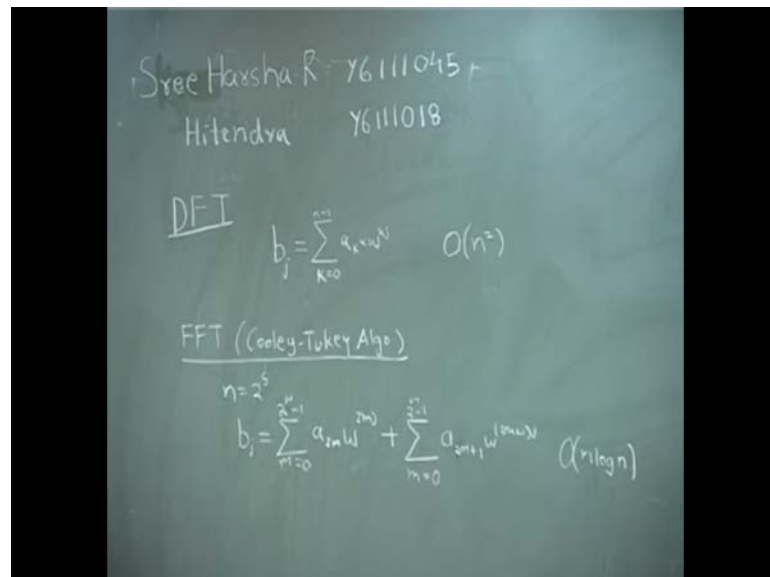 Sree Harsha.R Y6111045
Hitendra Y6111018
DFT
b_j = ∑_{K=0}^{n-1} a_K × ω^{kj} O(n²)
FFT (Cooley-Tukey Algo)
n = 2^s
b_j = ∑_{m=0} a_{2m} ω^{2mj} + ∑_{m=0} a_{2m+1} ω^{(2m+1)j} O(n log n)